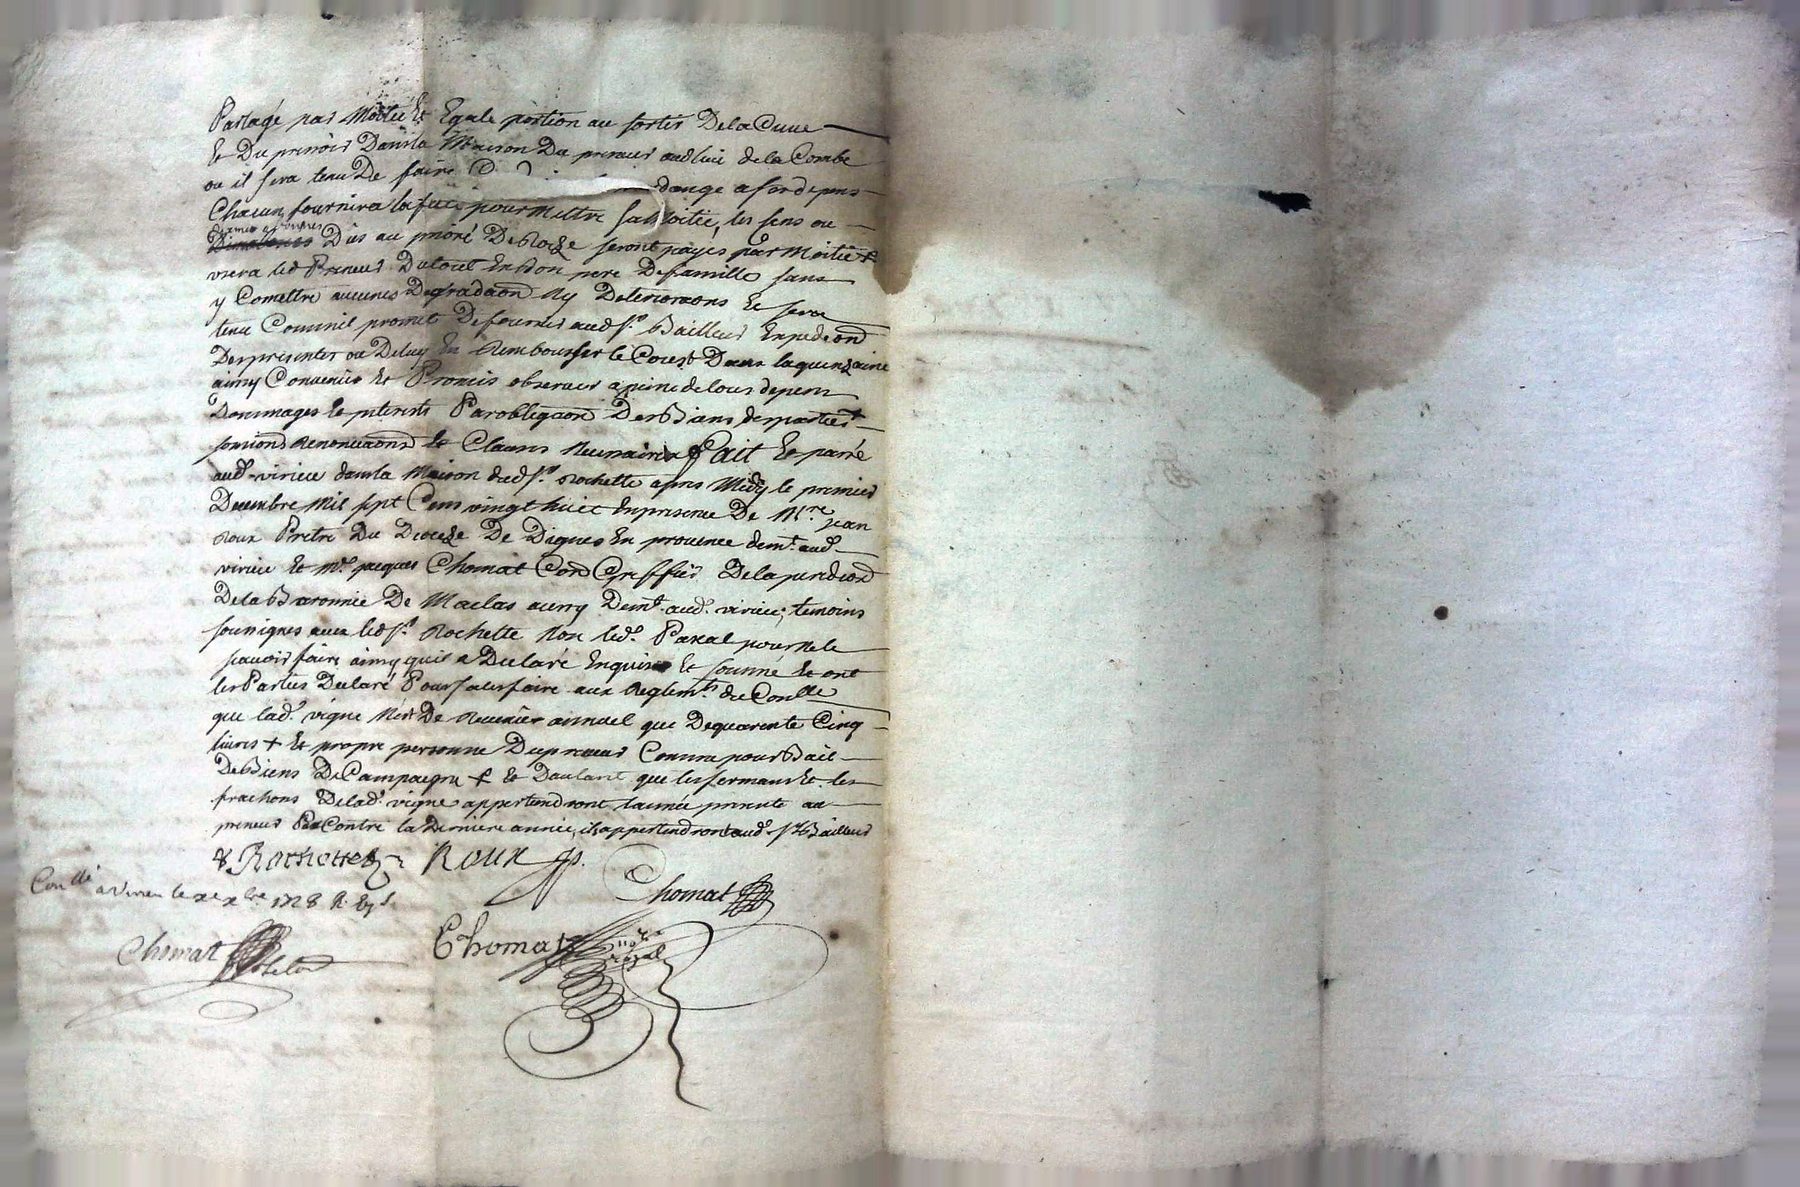 Partagé par Moitié Et Egale portion au sortir De la Cuue
Et Du pressoir Dans la Maison Du preneur audlieu de la Combe
ou il sera tenu De faire dange a ses depens
Chacun fournira la futé pour Mettre sa Moitié, les sens ou
Dus au prioré De Roche seront payés par Moitié +
vsera led Preneur Du tout En Bon pere De famille sans
y Comettre aucunes Degradaon Ny Deterioraons Et sera
tenu Comme il promet De fournir aud sr. Bailleur Expedeon
Des presentes ou De luy En Rembourser le Coust Dans la quinzaine
ainsy Convenu Et Promis observer a peine de tous depens
Dommages Et interests Par obligaon Des Biens des parties +
soumions Renonciaons Et Clauses Necessaires Fait Et passé
aud. virieu dans la Maison dud sr. Rochette apres Midy le premier
Decembre Mil sept Cens vingt huit En presence De Mre. jean
Roux Pretre Du Dioceze De Digne En provence demt. aud.
virieu Et Me. jacques Chomat Con Greffier De la juridion
De la Baronnie De Maclas aussy Demt. aud. virieu, temoins
soussignes avec led sr. Rochette Non led. Paxal pour Ne le
scavoir faire ainsy quil a Declaré Enquis Et sommé Et ont
les Parties Declaré Pour satisfaire aux Reglemts. du Conlle
que lad. vigne N'est De Revenu annuel que De quarente Cinq
livres + Et propre personne Du preneur Comme pour Bail
De Biens De Campaigne + Et Declaré que les sermans Et les
frachons De lad. vigne appertiendront l'année presente au
preneur Par Contre la Derniere année, ils appertiendront aud. sr Bailleur
Rochette Roux p.
Chomat
Conllé a Virieu le xe xbre 1728 R.
Chomat Chomat nore royal